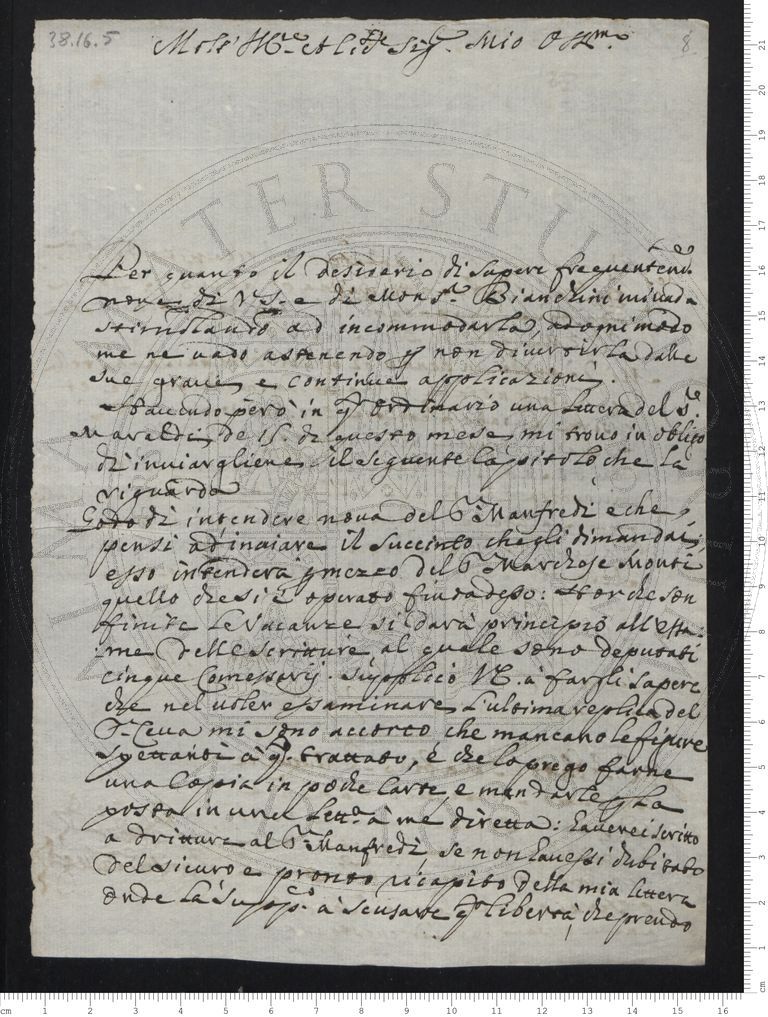 38.16.5
8
Molt' Ill.re et Sig.r Mio Oss.mo
Per quanto il desiderio di sapere frequentem.te
nove di V.S. e di Mons.r Bianchini mi vada
stimolando ad incommodarla, ad ogni modo
me ne vado astenendo p non divertirla dalle
sue gravi, e continue applicazioni.
Havendo però in q.to ordinario una lettera del S.r
Maraldi, de 15. di questo mese, mi trovo in obligo
di inviargliene il seguente Capitolo che la
riguarda
Godo di intendere nova del S.r Manfredi e che
pensi ad inviare il succinto che gli dimandai,
esso intenderà p mezzo del S.r Marchese Monti
quello che si è operato fin adesso: Hor che son
finite le vacanze si darà principio all' esa:
:me delle scritture al quale sono deputati
cinque Comessarij. Supplico V.S. à fargli sapere
che nel voler essaminare l'ultima replica del
S.r Ceva mi sono accorto che mancano le figure
spettanti à q.to trattato, e che lo prego farne
una Copia in poche carte, e mandarle p la
posta in una lett.a à me diretta: haverei scritto
a drittura al S.r Manfredi, se non havessi dubitato
del sicuro e pronto ricapito della mia lettera
onde la supp.co à scusare q.ta libertà, che prendo